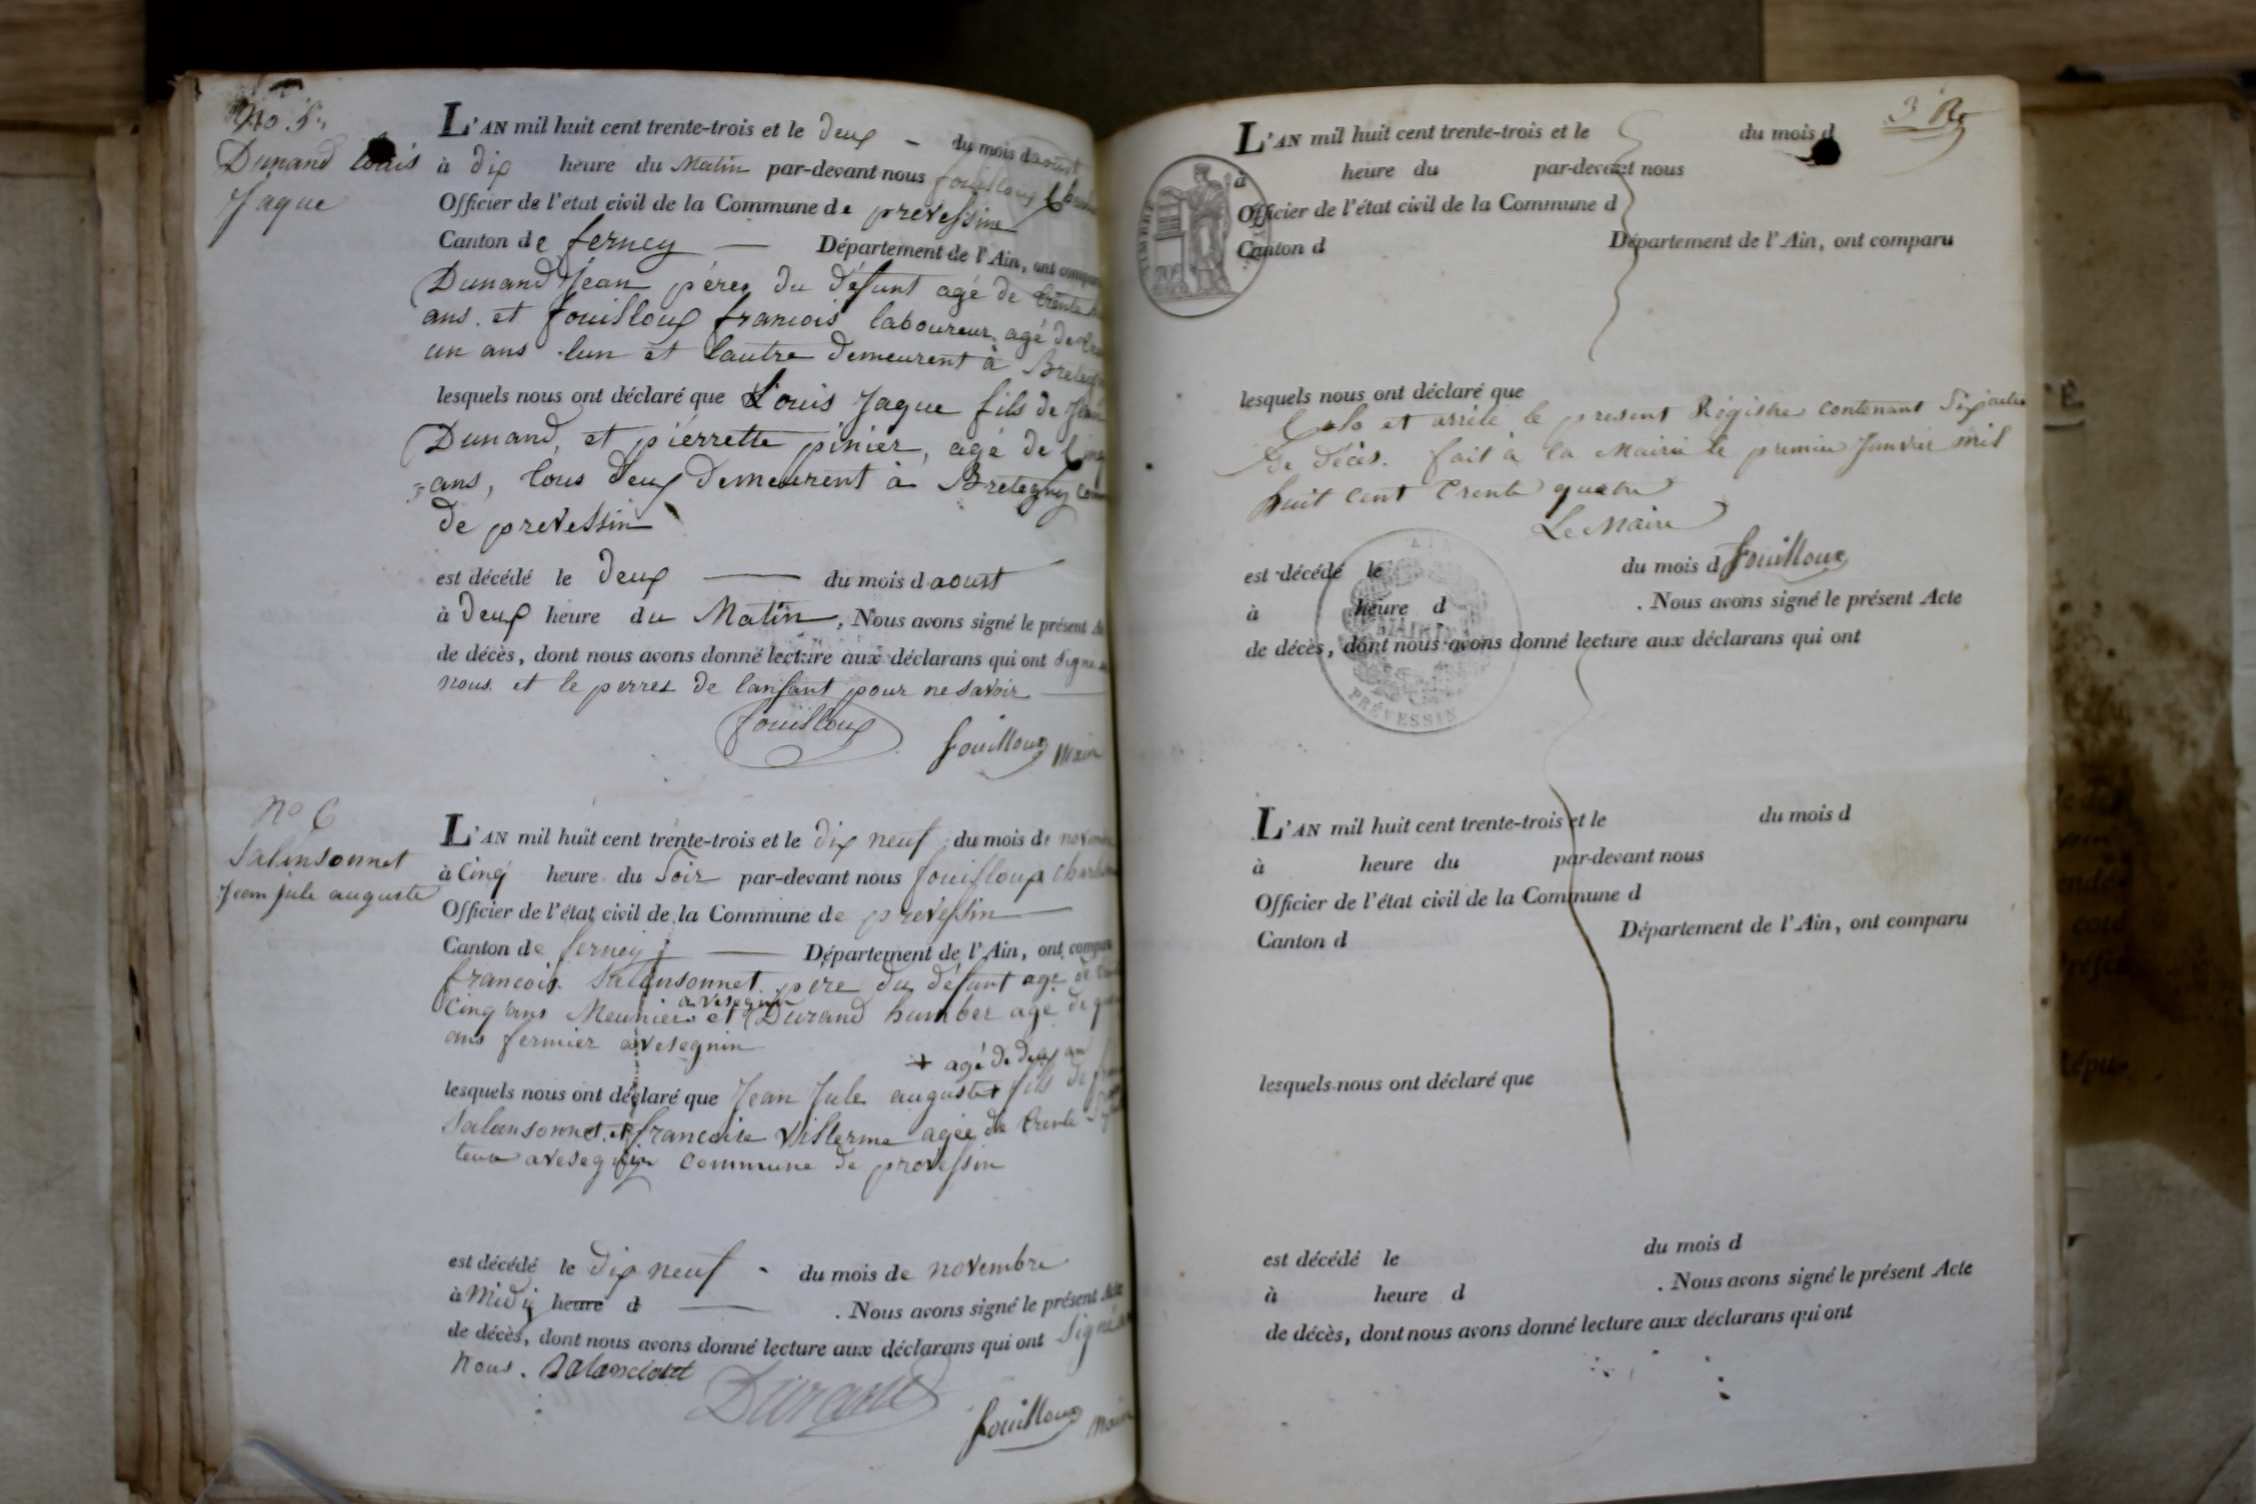 No 5.
Dunand Louis
Jaque
L'AN mil huit cent trente-trois et le deux du mois d aoust
à dix heure du Matin par-devant nous fouilloux
Officier de l'état civil de la Commune de prevessin
Canton de ferney Département de l'Ain, ont comparu
Dunand Jean péres du défunt agé de trente
ans. et fouilloux francois laboureur agé de
un ans lun et lautre demeurent à
lesquels nous ont déclaré que Louis Jaque fils de Jean
Dunand, et pierrette pinier, agé de
ans, tous deux demeurent à Bretegny
de prevessin
est décédé le deux du mois d aoust
à deux heure du Matin, Nous avons signé le présent
de décès, dont nous avons donné lecture aux déclarans qui ont signé
nous. et le perres de lanfant pour ne savoir
fouilloux
fouilloux maire
No 6
Salansonnet
Jean jule auguste
L'AN mil huit cent trente-trois et le dix neuf du mois de
à Cinq heure du Soir par-devant nous fouilloux
Officier de l'état civil de la Commune de prevessin
Canton de ferney Département de l'Ain, ont
francois Salansonnet pére du défunt agé de
a vesegnin
Cinq ans Meunier et Durand humber agé de
ans fermier avesegnin
+ agé de deux an
lesquels nous ont déclaré que Jean Jule auguste + fils de
Salansonnet et francoise Villerme agée de trente
avesegnin commune de prevessin
est décédé le dix neuf du mois de novembre
à Midy heure d . Nous avons signé le présent Acte
de décès, dont nous avons donné lecture aux déclarans qui ont Signé
nous.
Durand
fouilloux maire
3 Re
L'AN mil huit cent trente-trois et le du mois d
à heure du par-devant nous
Officier de l'état civil de la Commune d
Canton d Département de l'Ain, ont comparu
TIMBRE
lesquels nous ont déclaré que
Clo et arrêté le present Régistre contenant Six actes
De décès. fait à la Mairie le premier Janvier mil
huit cent trente quatre
Le Maire
est décédé le du mois d fouilloux
à heure d . Nous avons signé le présent Acte
de décès, dont nous avons donné lecture aux déclarans qui ont
MAIRIE
PRÉVESSIN
L'AN mil huit cent trente-trois et le du mois d
à heure du par-devant nous
Officier de l'état civil de la Commune d
Canton d Département de l'Ain, ont comparu
lesquels nous ont déclaré que
est décédé le du mois d
à heure d . Nous avons signé le présent Acte
de décès, dont nous avons donné lecture aux déclarans qui ont